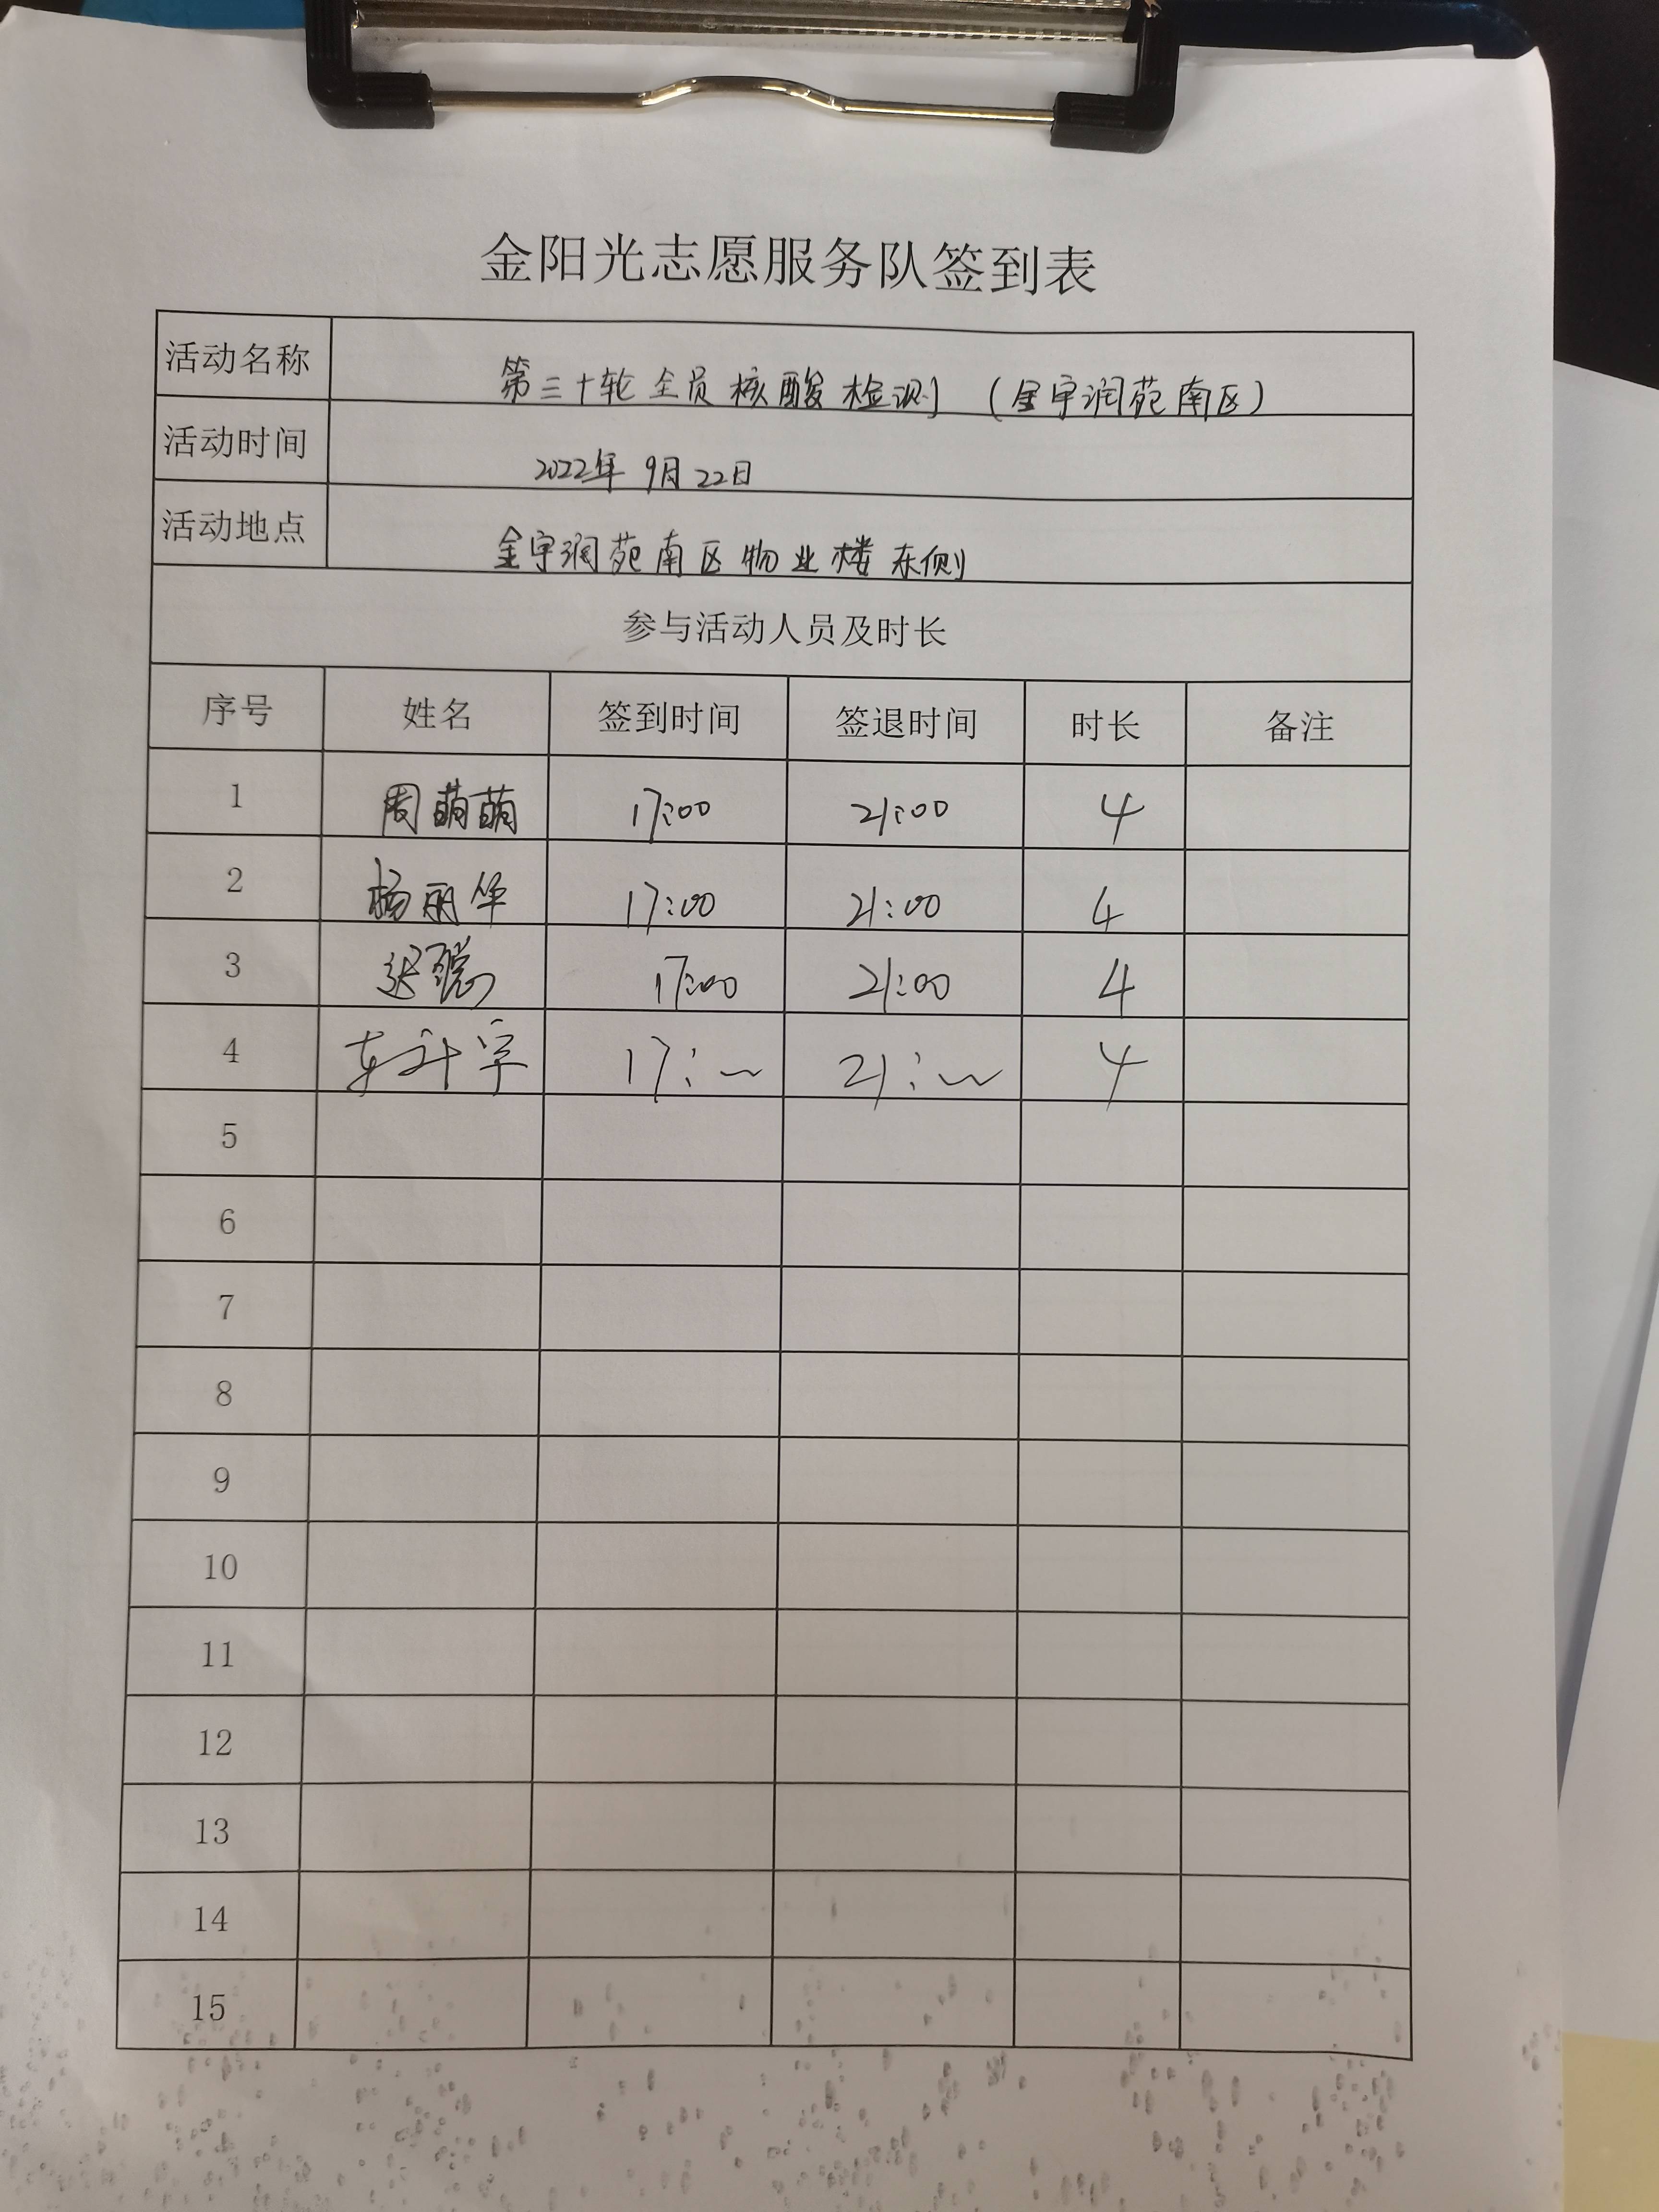 金阳光志愿服务队签到表
活动名称 第三十轮全员核酸检测 (金宇润苑南区)
活动时间 2022年9月22日
活动地点 金宇润苑南区物业楼东侧
参与活动人员及时长
序号 姓名 签到时间 签退时间 时长 备注
1 周萌萌 17:00 21:00 4
2 杨丽华 17:00 21:00 4
3 迟聪 17:00 21:00 4
4 车升宇 17: 21: 4
5
6
7
8
9
10
11
12
13
14
15